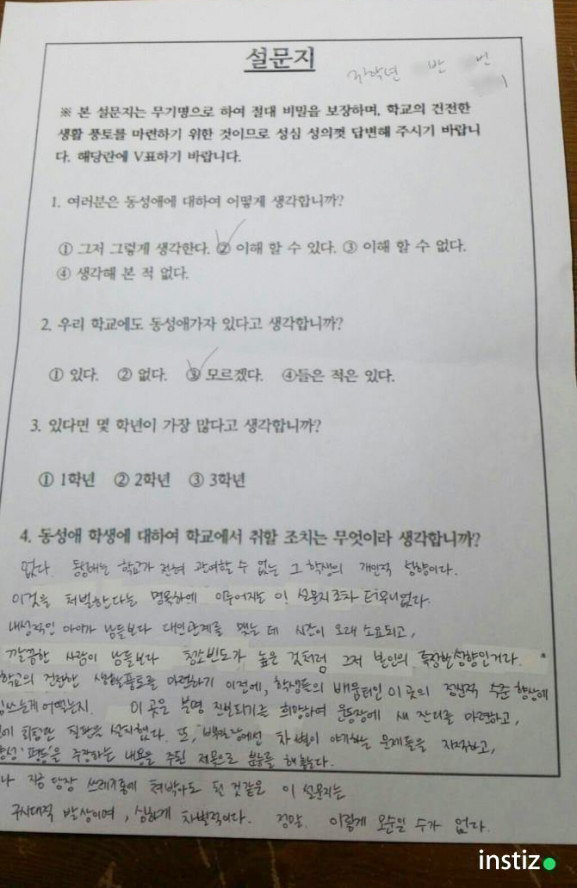 설문지
학년 반 번
※ 본 설문지는 무기명으로 하여 절대 비밀을 보장하며, 학교의 건전한
생활 풍토를 마련하기 위한 것이므로 성심 성의껏 답변해 주시기 바랍니
다. 해당란에 V표하기 바랍니다.
1. 여러분은 동성애에 대하여 어떻게 생각합니까?
① 그저 그렇게 생각한다. ② 이해 할 수 있다. ③ 이해 할 수 없다.
④ 생각해 본 적 없다.
2. 우리 학교에도 동성애가자 있다고 생각합니까?
① 있다. ② 없다. ③ 모르겠다. ④들은 적은 있다.
3. 있다면 몇 학년이 가장 많다고 생각합니까?
① 1학년 ② 2학년 ③ 3학년
4. 동성애 학생에 대하여 학교에서 취할 조치는 무엇이라 생각합니까?
없다. 동성애는 학교가 전혀 관여할 수 없는 그 학생의 개인적 성향이다.
이것을 처벌한다는 명목하에 이루어지는 이 설문지조차 터무니없다.
내성적인 아이가 남들보다 대인관계를 맺는 데 시간이 오래 소요되고,
깔끔한 사람이 남들보다 청소빈도가 높은 것처럼 그저 본인의 특정한 성향인거다.
학교의 건전한 생활풍토를 마련하기 이전에, 학생들의 배움터인 이 곳의 정상적 수준 향상에
쓰는게 어떻는지. 이 곳은 분명 진보되기를 희망하여 운동장에 새 잔디를 마련하고,
설치했다. 또, 차별이 야기하는 문제들을 지적하고,
'평등'을 주장하는 내용을 주된 제목으로
나 지금 당장 쓰레기통에 쳐박아도 될 것같은 이 설문지는
구시대적 발상이며, 심하게 차별적이다. 정말, 이렇게 모순일 수가 없다.
instiz